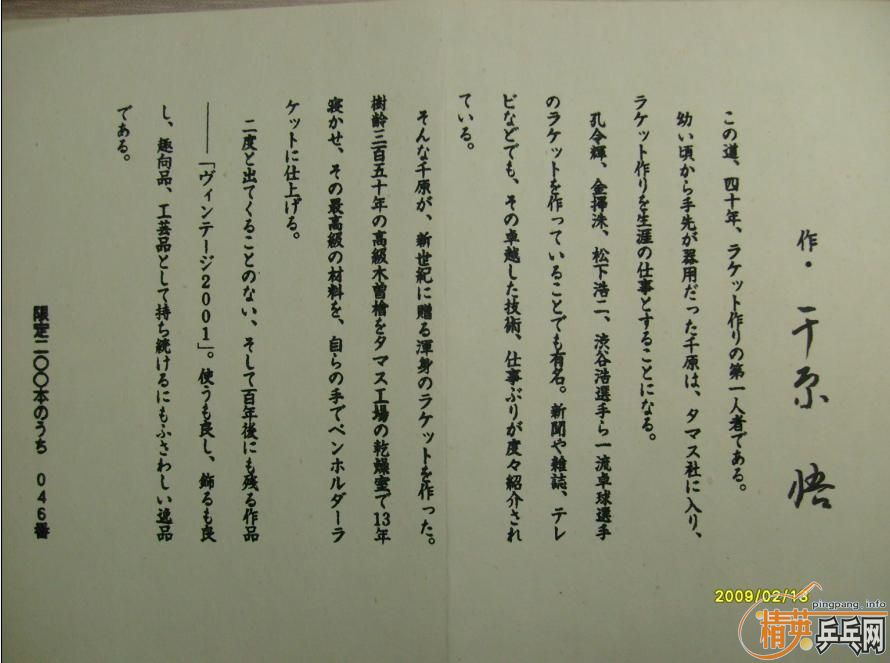 作・千原 悟
この道、四十年、ラケット作りの第一人者である。
幼い頃から手先が器用だった千原は、タマス社に入り、
ラケット作りを生涯の仕事とすることになる。
孔令輝、金擇洙、松下浩二、渋谷浩選手ら一流卓球選手
のラケットを作っていることでも有名。新聞や雑誌、テレ
ビなどでも、その卓越した技術、仕事ぶりが度々紹介され
ている。
そんな千原が、新世紀に贈る渾身のラケットを作った。
樹齢三百五十年の高級木曽檜をタマス工場の乾燥室で13年
寝かせ、その最高級の材料を、自らの手でペンホルダーラ
ケットに仕上げる。
二度と出てくることのない、そして百年後にも残る作品
――「ヴィンテージ2001」。使うも良し、飾るも良
し、趣向品、工芸品として持ち続けるにもふさわしい逸品
である。
限定二〇〇本のうち 046番
2009/02/13
pingpang.info
精英乒乓网